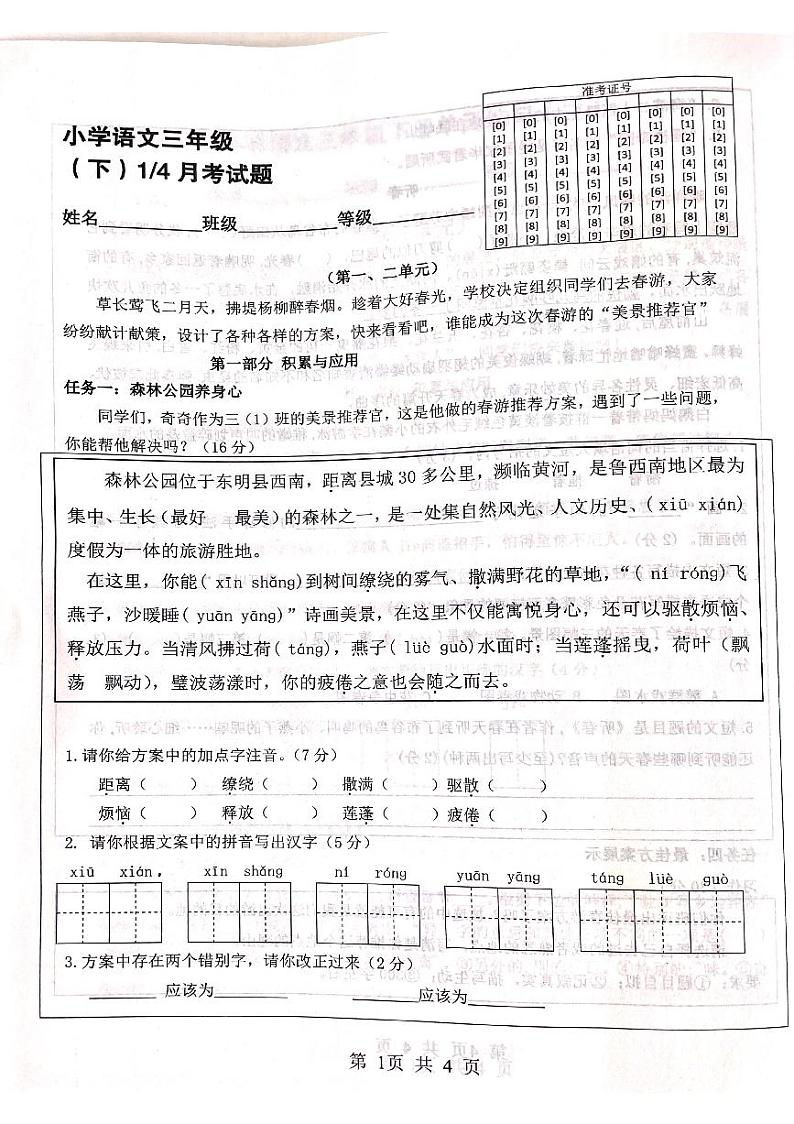 准考证号
[0] [0] [0] [0] [0] [0] [0] [0]
[1] [1] [1] [1] [1] [1] [1] [1]
[2] [2] [2] [2] [2] [2] [2] [2]
[3] [3] [3] [3] [3] [3] [3] [3]
[4] [4] [4] [4] [4] [4] [4] [4]
[5] [5] [5] [5] [5] [5] [5] [5]
[6] [6] [6] [6] [6] [6] [6] [6]
[7] [7] [7] [7] [7] [7] [7] [7]
[8] [8] [8] [8] [8] [8] [8] [8]
[9] [9] [9] [9] [9] [9] [9] [9]
小学语文三年级
（下）1/4 月考试题
姓名__________班级__________等级__________
（第一、二单元）
草长莺飞二月天，拂堤杨柳醉春烟。趁着大好春光，学校决定组织同学们去春游，大家
纷纷献计献策，设计了各种各样的方案，快来看看吧，谁能成为这次春游的“美景推荐官”
第一部分 积累与应用
任务一：森林公园养身心
同学们，奇奇作为三（1）班的美景推荐官，这是他做的春游推荐方案，遇到了一些问题，
你能帮他解决吗？（16 分）
森林公园位于东明县西南，距离县城 30 多公里，濒临黄河，是鲁西南地区最为
集中、生长(最好 最美)的森林之一，是一处集自然风光、人文历史、(xiū xián)
度假为一体的旅游胜地。
在这里，你能( xīn shǎng)到树间缭绕的雾气、撒满野花的草地，“( ní róng)飞
燕子，沙暖睡( yuān yāng)”诗画美景，在这里不仅能寓悦身心，还可以驱散烦恼、
释放压力。当清风拂过荷( táng)，燕子(lüè guò)水面时；当莲蓬摇曳，荷叶（飘
荡 飘动)，璧波荡漾时，你的疲倦之意也会随之而去。
1.请你给方案中的加点字注音。(7 分)
距离（ ） 缭绕（ ） 撒满（ ）驱散（ ）
烦恼（ ） 释放（ ） 莲蓬（ ）疲倦（ ）
2. 请你根据文案中的拼音写出汉字(5 分)
xiū xián, xīn shǎng ní róng yuān yāng táng lüè guò
3.方案中存在两个错别字，请你改正过来(2 分)
________应该为________ ________应该为________
第 1页 共 4 页